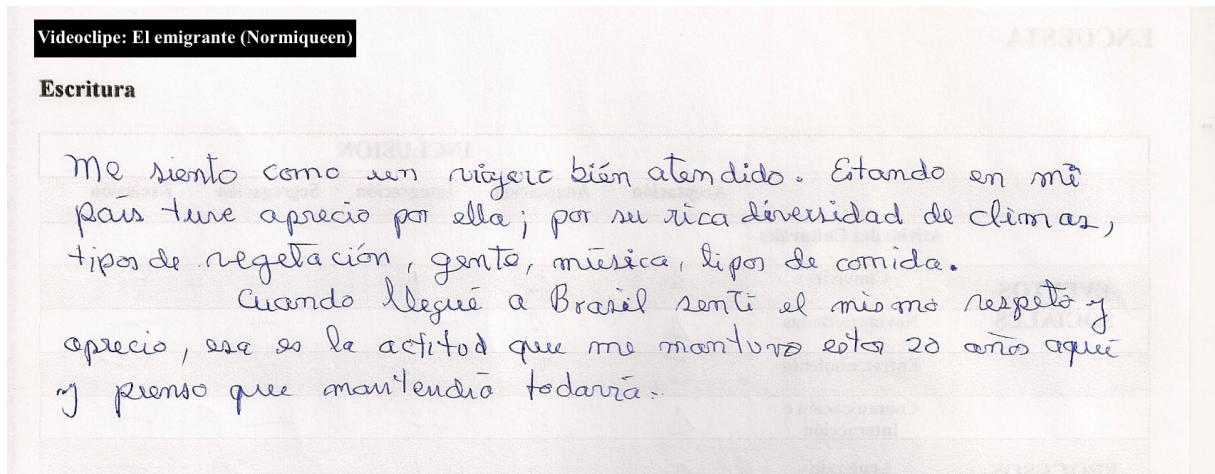 Videoclipe: El emigrante (Normiqueen)
Escritura
Me siento como un viajero bién atendido. Estando en mi
país tuve aprecio por ella; por su rica diversidad de climas,
tipos de vegetación, gente, música, tipos de comida.
Cuando llegué a Brasil sentí el mismo respeto y
aprecio, esa es la actitud que me mantuvo estos 20 años aquí
y pienso que mantendrá todavía.